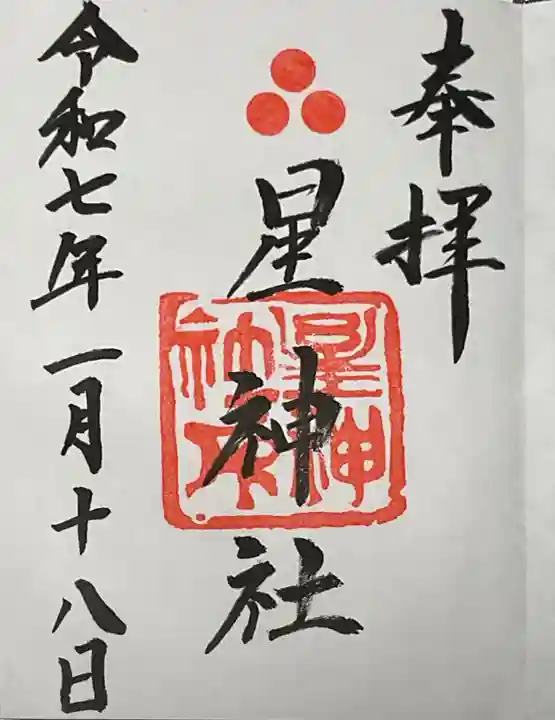 奉拝
星神社
令和七年一月十八日